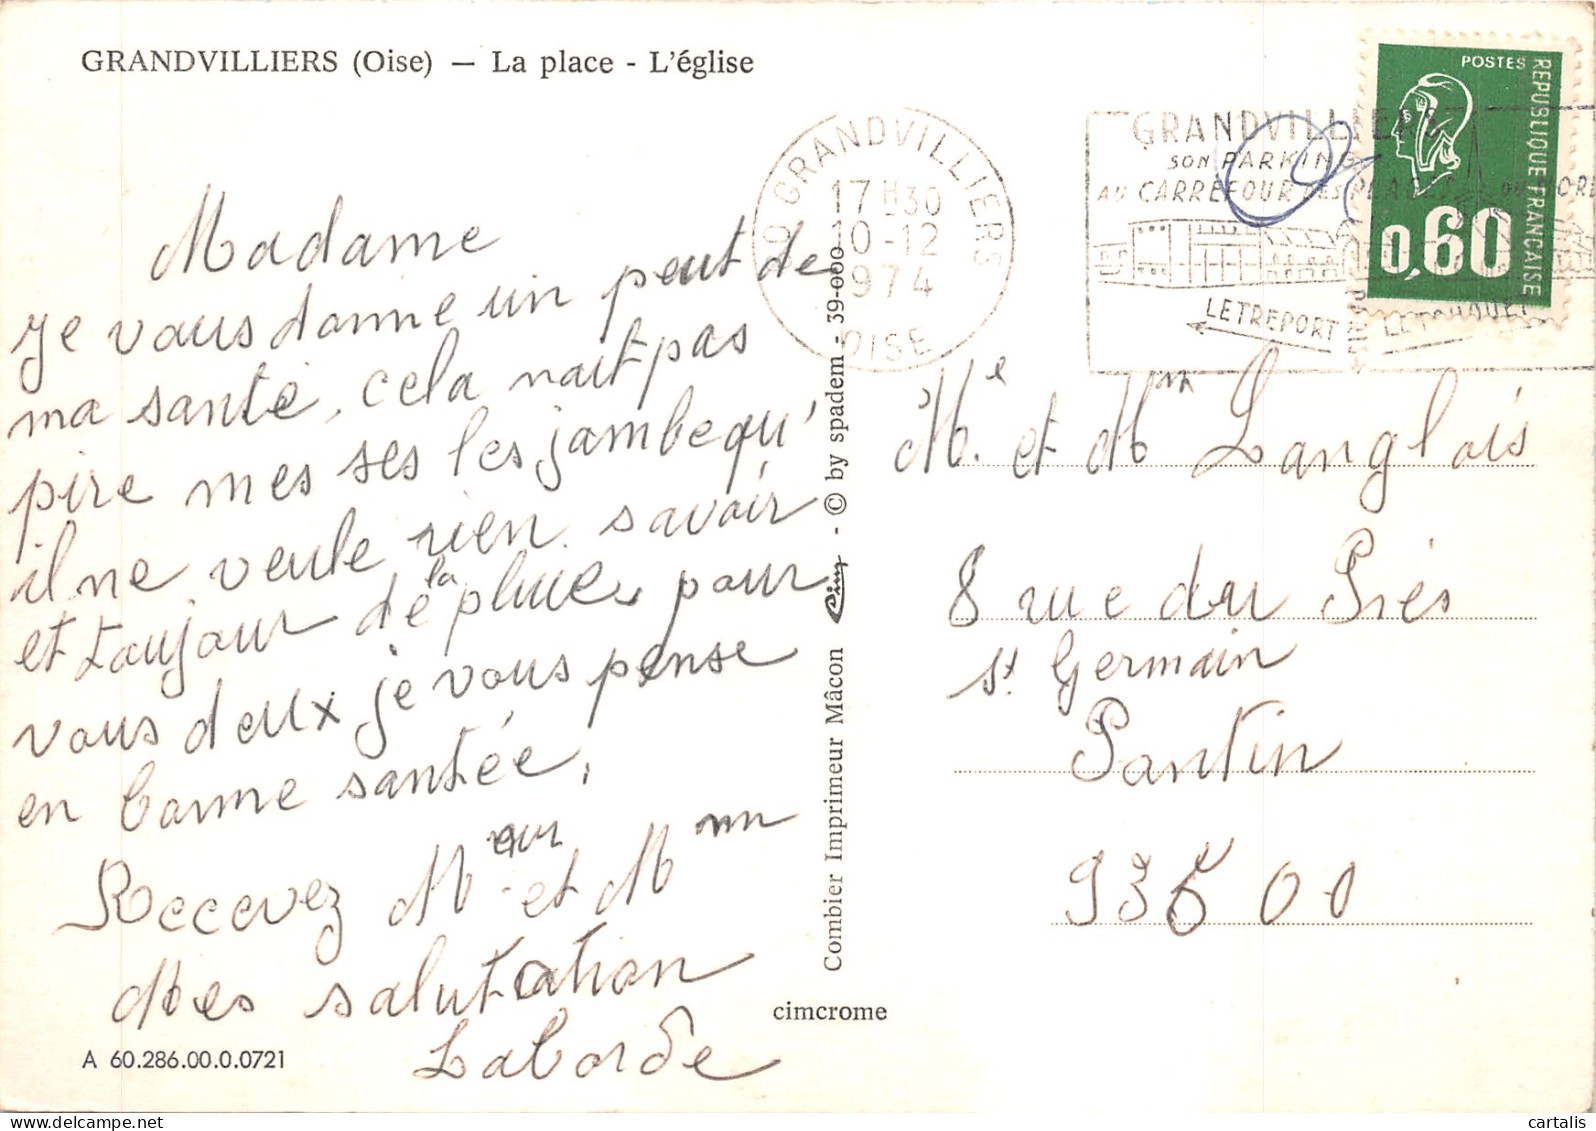 GRANDVILLIERS (Oise) — La place - L'église
Madame
je vous donne un peut de
ma santé, cela nait pas
pire mes ses les jambe qu'
il ne veule rien savoir
et toujour de la pluie, pour
vous deux je vous pense
en bonne santée,
Recevez Meur et Mmm
Mes salutation
Laborde
A 60.286.00.0.0721
Combier Imprimeur Mâcon - © by spadem - 39-000
cimcrome
GRANDVILLIERS
17 H 30
10-12
1974
OISE
GRANDVILLIERS
SON PARKING
AU CARREFOUR DES PLAGES DU NORD
LE TREPORT
LE TOUQUET
POSTES
REPUBLIQUE FRANCAISE
0,60
Me et Mm Langlois
8 rue du Prés
St. Germain
Pantin
93500
cartalis
www.delcampe.net